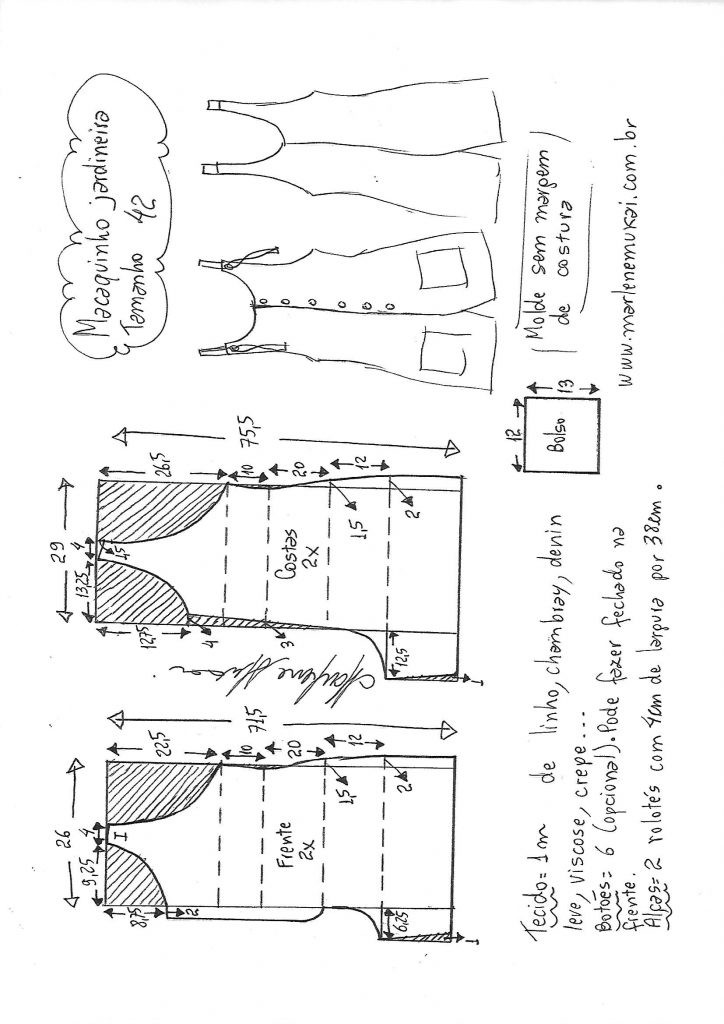 26
9,25
4
I
22,5
8,75
2
10
71,5
20
12
Frente
2x
1,5
2
6,25
1
29
13,25
4
1,5
26,5
12,75
4
10
75,5
20
12
Costas
2x
3
1,5
2
12,5
1
Macaquinho jardineira
Tamanho 42
Tecido = 1m de linho, chambray, denin
leve, viscose, crepe...
Botões = 6 (opcional). Pode fazer fechado na
frente.
Alças = 2 rolotês com 4cm de largura por 38cm.
12
13
Bolso
Molde sem margem
de costura
www.marlenemukai.com.br